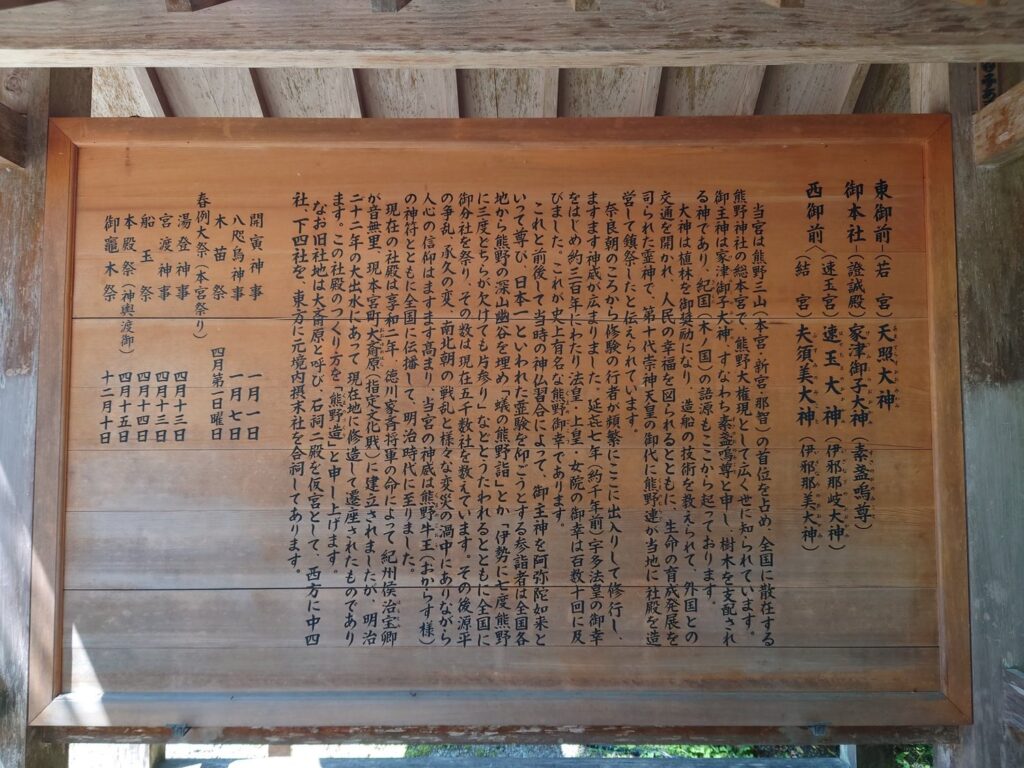 東御前（若宮）天照大神
御本社（證誠殿）家津御子大神（素盞嗚尊）
西御前（速玉宮）速玉大神（伊邪那岐大神）
（結宮）夫須美大神（伊邪那美大神）
当宮は熊野三山（本宮・新宮・那智）の首位を占め、全国に散在する
熊野神社の総本宮で、熊野大権現として広く世に知られています。
御主神は家津御子大神、すなわち素盞嗚尊と申し、樹木を支配され
る神であり、紀国（木ノ国）の語源もここから起っております。
大神は植林を御奨励になり、造船の技術を教えられて、外国との
交通を開かれ、人民の幸福を図られるとともに、生命の育成発展を
司られた霊神で、第十代崇神天皇の御代に熊野連が当地に社殿を造
営して領祭したと伝えられています。
奈良朝のころから修験の行者が頻繁にここに出入りして修行し、
ますます神威が広まりました、延㐂七年（約千年前）宇多法皇の御幸
をはじめ約三百年にわたり法皇・上皇・女院の御幸は百数十回に及
びました、これが史上有名な熊野御幸であります。
これと前後して当時の神仏習合によって、御主神を阿弥陀如来と
いって尊び、日本一といわれた霊験を仰ごうとする参詣者は全国各
地から熊野の深山幽谷を埋め「蟻の熊野詣」とか「伊勢に七度熊野
に三度どちらが欠けても片参り」などとうたわれるとともに全国に
御分社を祭り、その数は現在五千数社を数えています。その後源平
の争乱、承久の変、南北朝の戦乱と様々な変災の渦中にありながら
人心の信仰はますます高まり、当宮の神威は熊野牛王（おからす様）
の神符とともに全国に伝播して、明治時代に至りました。
現在の社殿は享和二年、徳川家斉将軍の命によって、紀州侯治宝卿
が音無里、現本宮町大斎原（指定文化戝）に建立されましたが、明治
二十二年の大出水にあって、現在地に修造して遷座されたものであり
ます。この社殿のつくり方を「熊野造」と申し上げます。
なお旧社地は大斎原と呼び、石祠二殿を仮宮として、西方に中四
社、下四社を、東方に元境内摂末社を合祀してあります。
開寅神事 一月一日
八咫烏神事 一月七日
木苗祭 四月第一日曜日
春例大祭（本宮祭り）
湯登神事 四月十三日
宮渡神事 四月十三日
船玉祭 四月十四日
本殿祭（神輿渡御） 四月十五日
御竈木祭 十二月十日